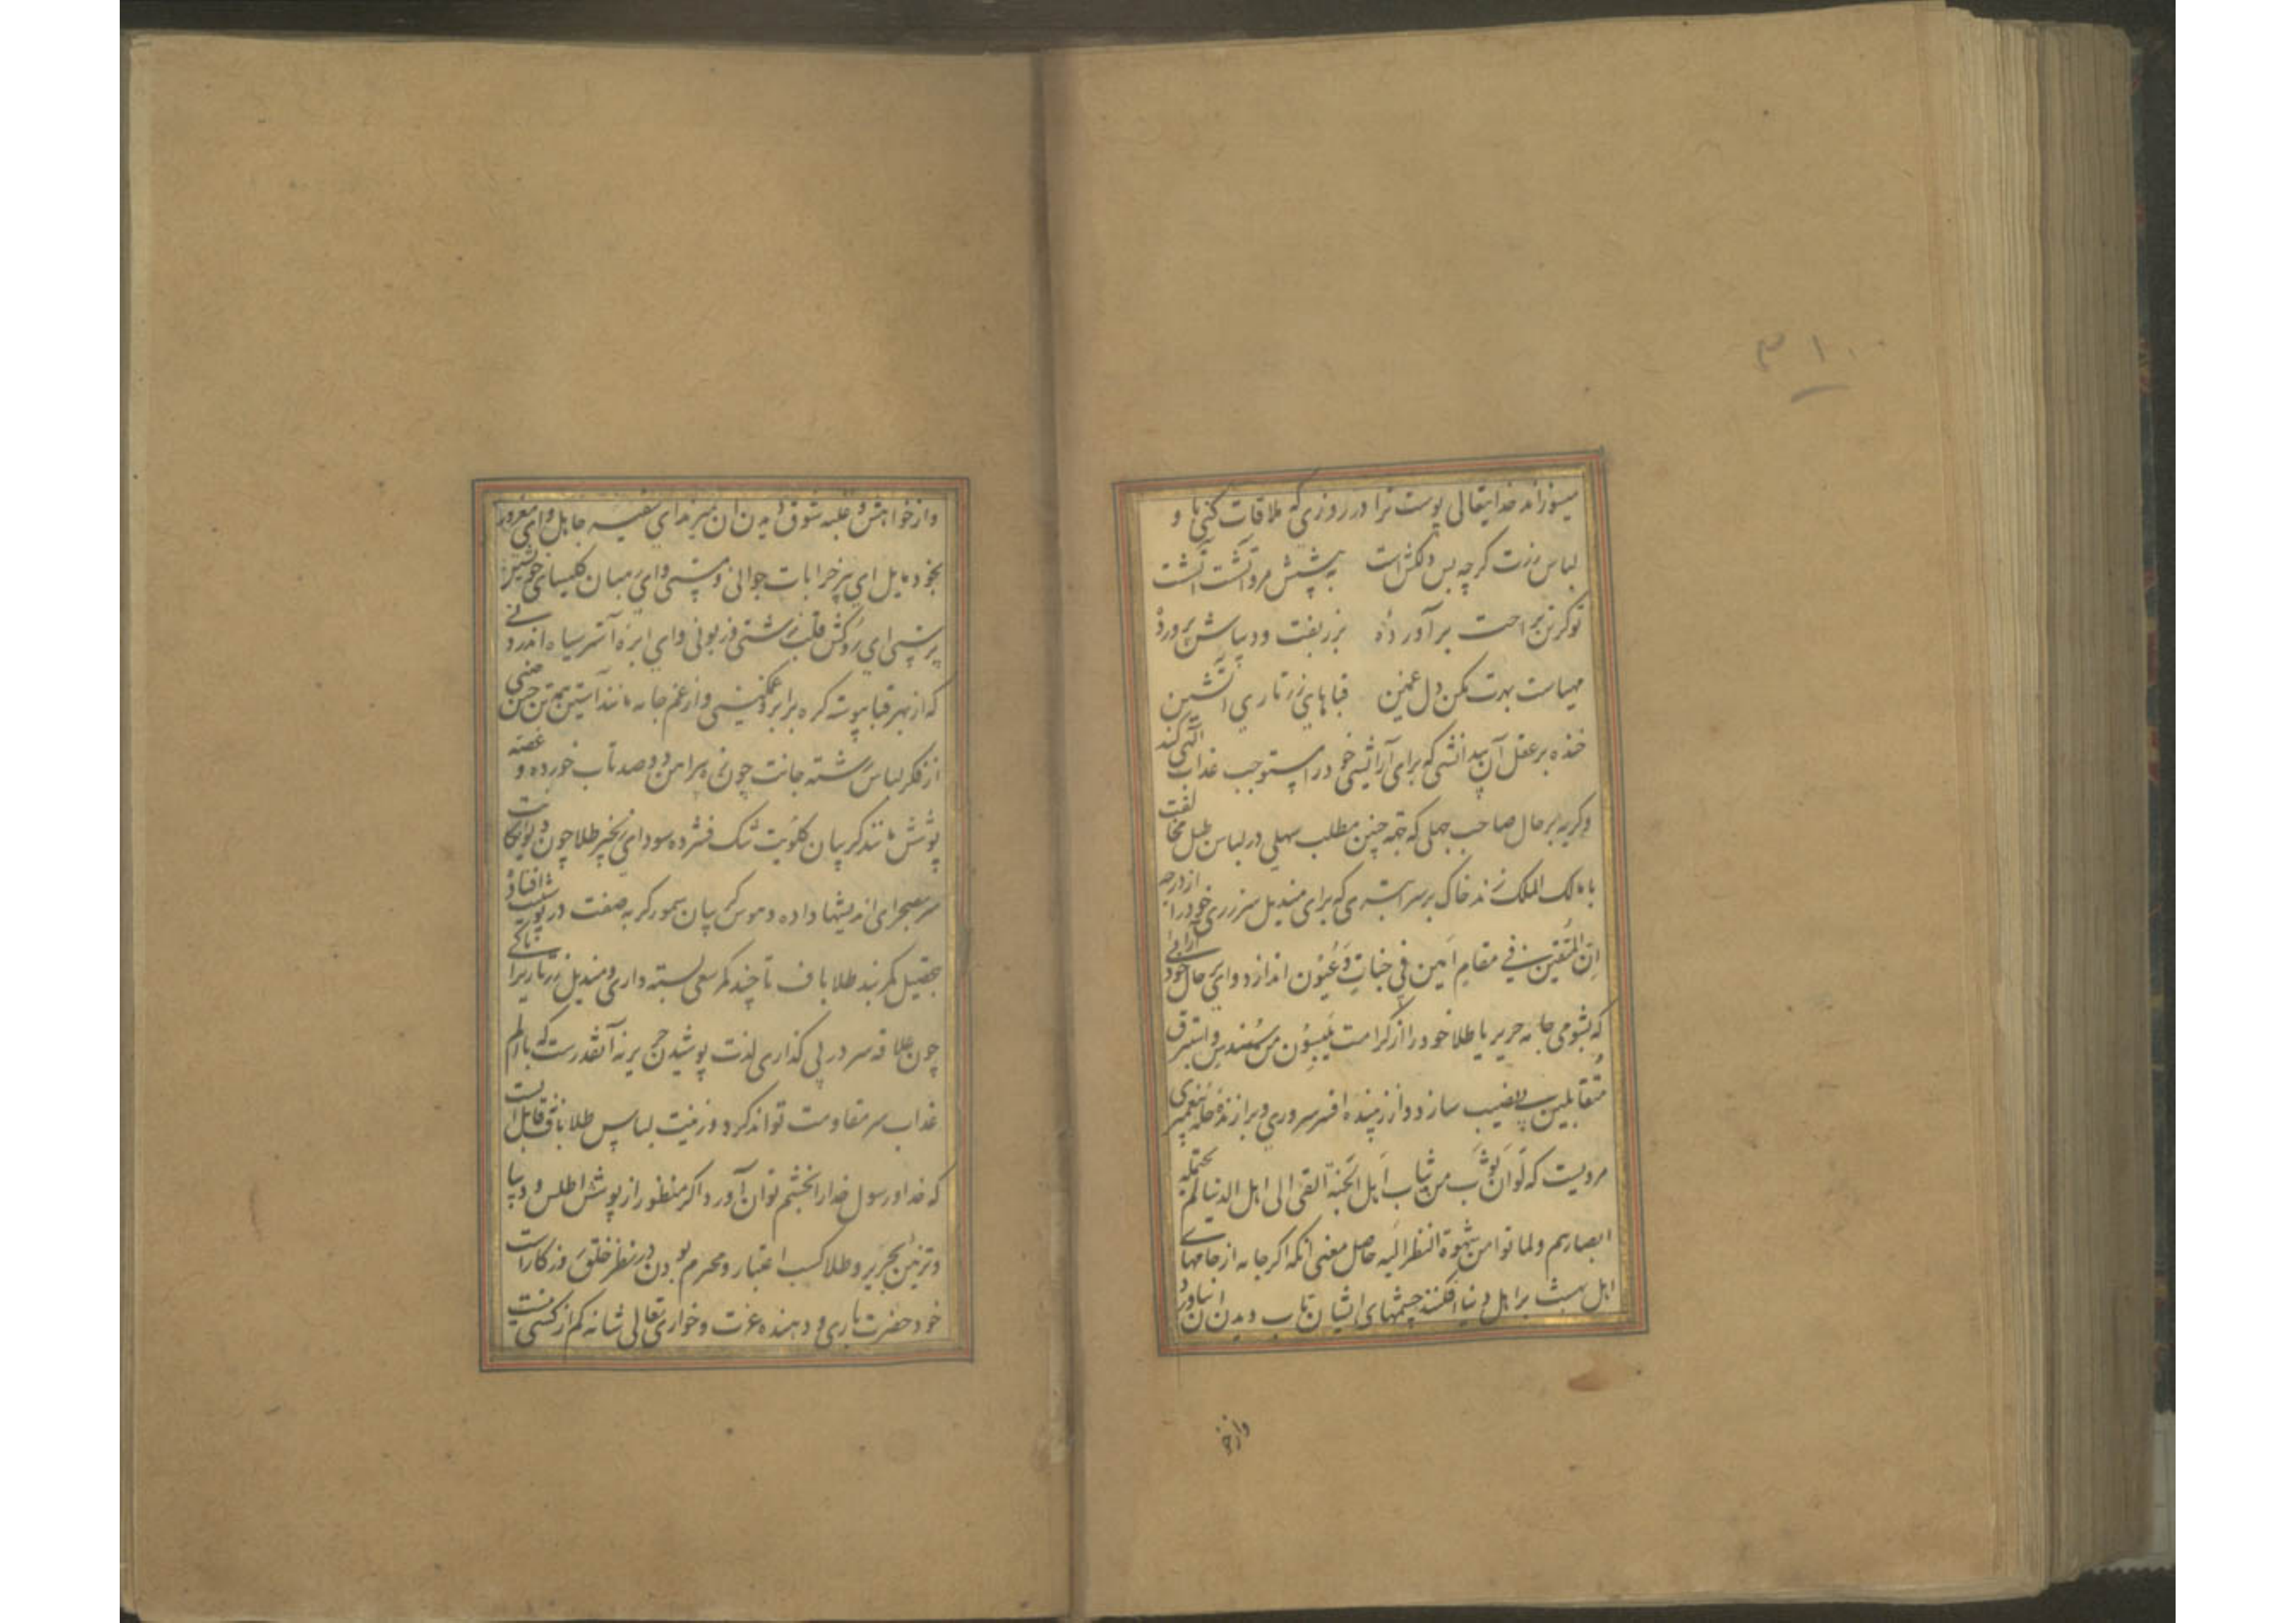 ۳۱۰
میسوزاند خدایتعالی پوست ترا در روزی که ملاقات کنی با و
لباس زرت کرچه بس دلکش است به پیش مرو آتشت آتشت
تو کرتن براحت برآورده بزربفت و دیباش پرورده
مهیاست بهرت مکن دل غمین قباهای زرتاری آتشین
خنده بر عقل آن بیدانشی که برای آرایشی خود را مستوجب عذاب الهی کند
وکریه بر حال صاحب جهلی که بجهة چنین مطلب سهلی در لباس طبل مخالفت
با مالک الملک زند خاک بر سر ابتری که برای مندیل سرزری خود را از درجه
اِنّ المُتّقین فی مقامٍ اَمین فی جناتٍ وَعُیُون اندازد و وای بر حال خود آرائی
که بشومی جامه حریر یا طلا خود را از کرامت یَلبِسُون مِن سُندسٍ و استبرق
مُتَقابلین بی نصیب سازد و از زیبنده افسر سروری و برازنده حله پیغمبری
مرویست که لَو اَنّ ثَوب من ثیاب اَهل الجَنّة اَلقی الی اهل الدنیا لم یحتمله
ابصارهم ولماتوا من شهوة النظر الیه حاصل معنی آنکه اکر جامه از جامهای
اهل بهشت بر اهل دنیا افکنند چشمهای ایشان تاب دیدن آن نیاورد
واز خو
واز خواهش و غلبه شوق دیدن آن میرند ای نفیسه جاهل و ای مغرور
بخود مایل ای پیر خرابات جوانی و مستی و ای رهبان کلیسای خویشتن
پرستی ای روکش قلب زشتی و زبونی و ای ابرهٔ آستر سیاه اندرونی
که از بهر قبا پیوسته کره بر ابرو می‌کنی و از غم جامه مانند آستین همه تن چین چینی
از فکر لباس رشته جانت چون نخ پیراهن دو صد تاب خورده و غصه
پوشش مانند کریبان کلویت تنک فشرده سودای نخیر طلا چون دیوانکانت
سر بصحرای اندیشها داده و هوس کریبان سمور کربه صفت در پوستینت افتاده
بتحصیل کمربند طلاباف تا چند کمر سعی بسته داری و مندیل زرتاریرا تا کی
چون علاقه سر در پی کذاری لذت پوشیدن حریر نه آنقدرست که با الم
عذاب سر مقاومت تواند کرد و زینت لباس طلاباف نه قابل آنست
که خدا و رسول خدا را بخشم توان آورد اکر منظور از پوشش اطلس و دیبا
و تزیین بحریر و طلا کسب اعتبار و محرم بودن در نظر خلق روزکار است
خود حضرت باری و دهنده عزت و خواری تعالی شانه کم از کسی نیست